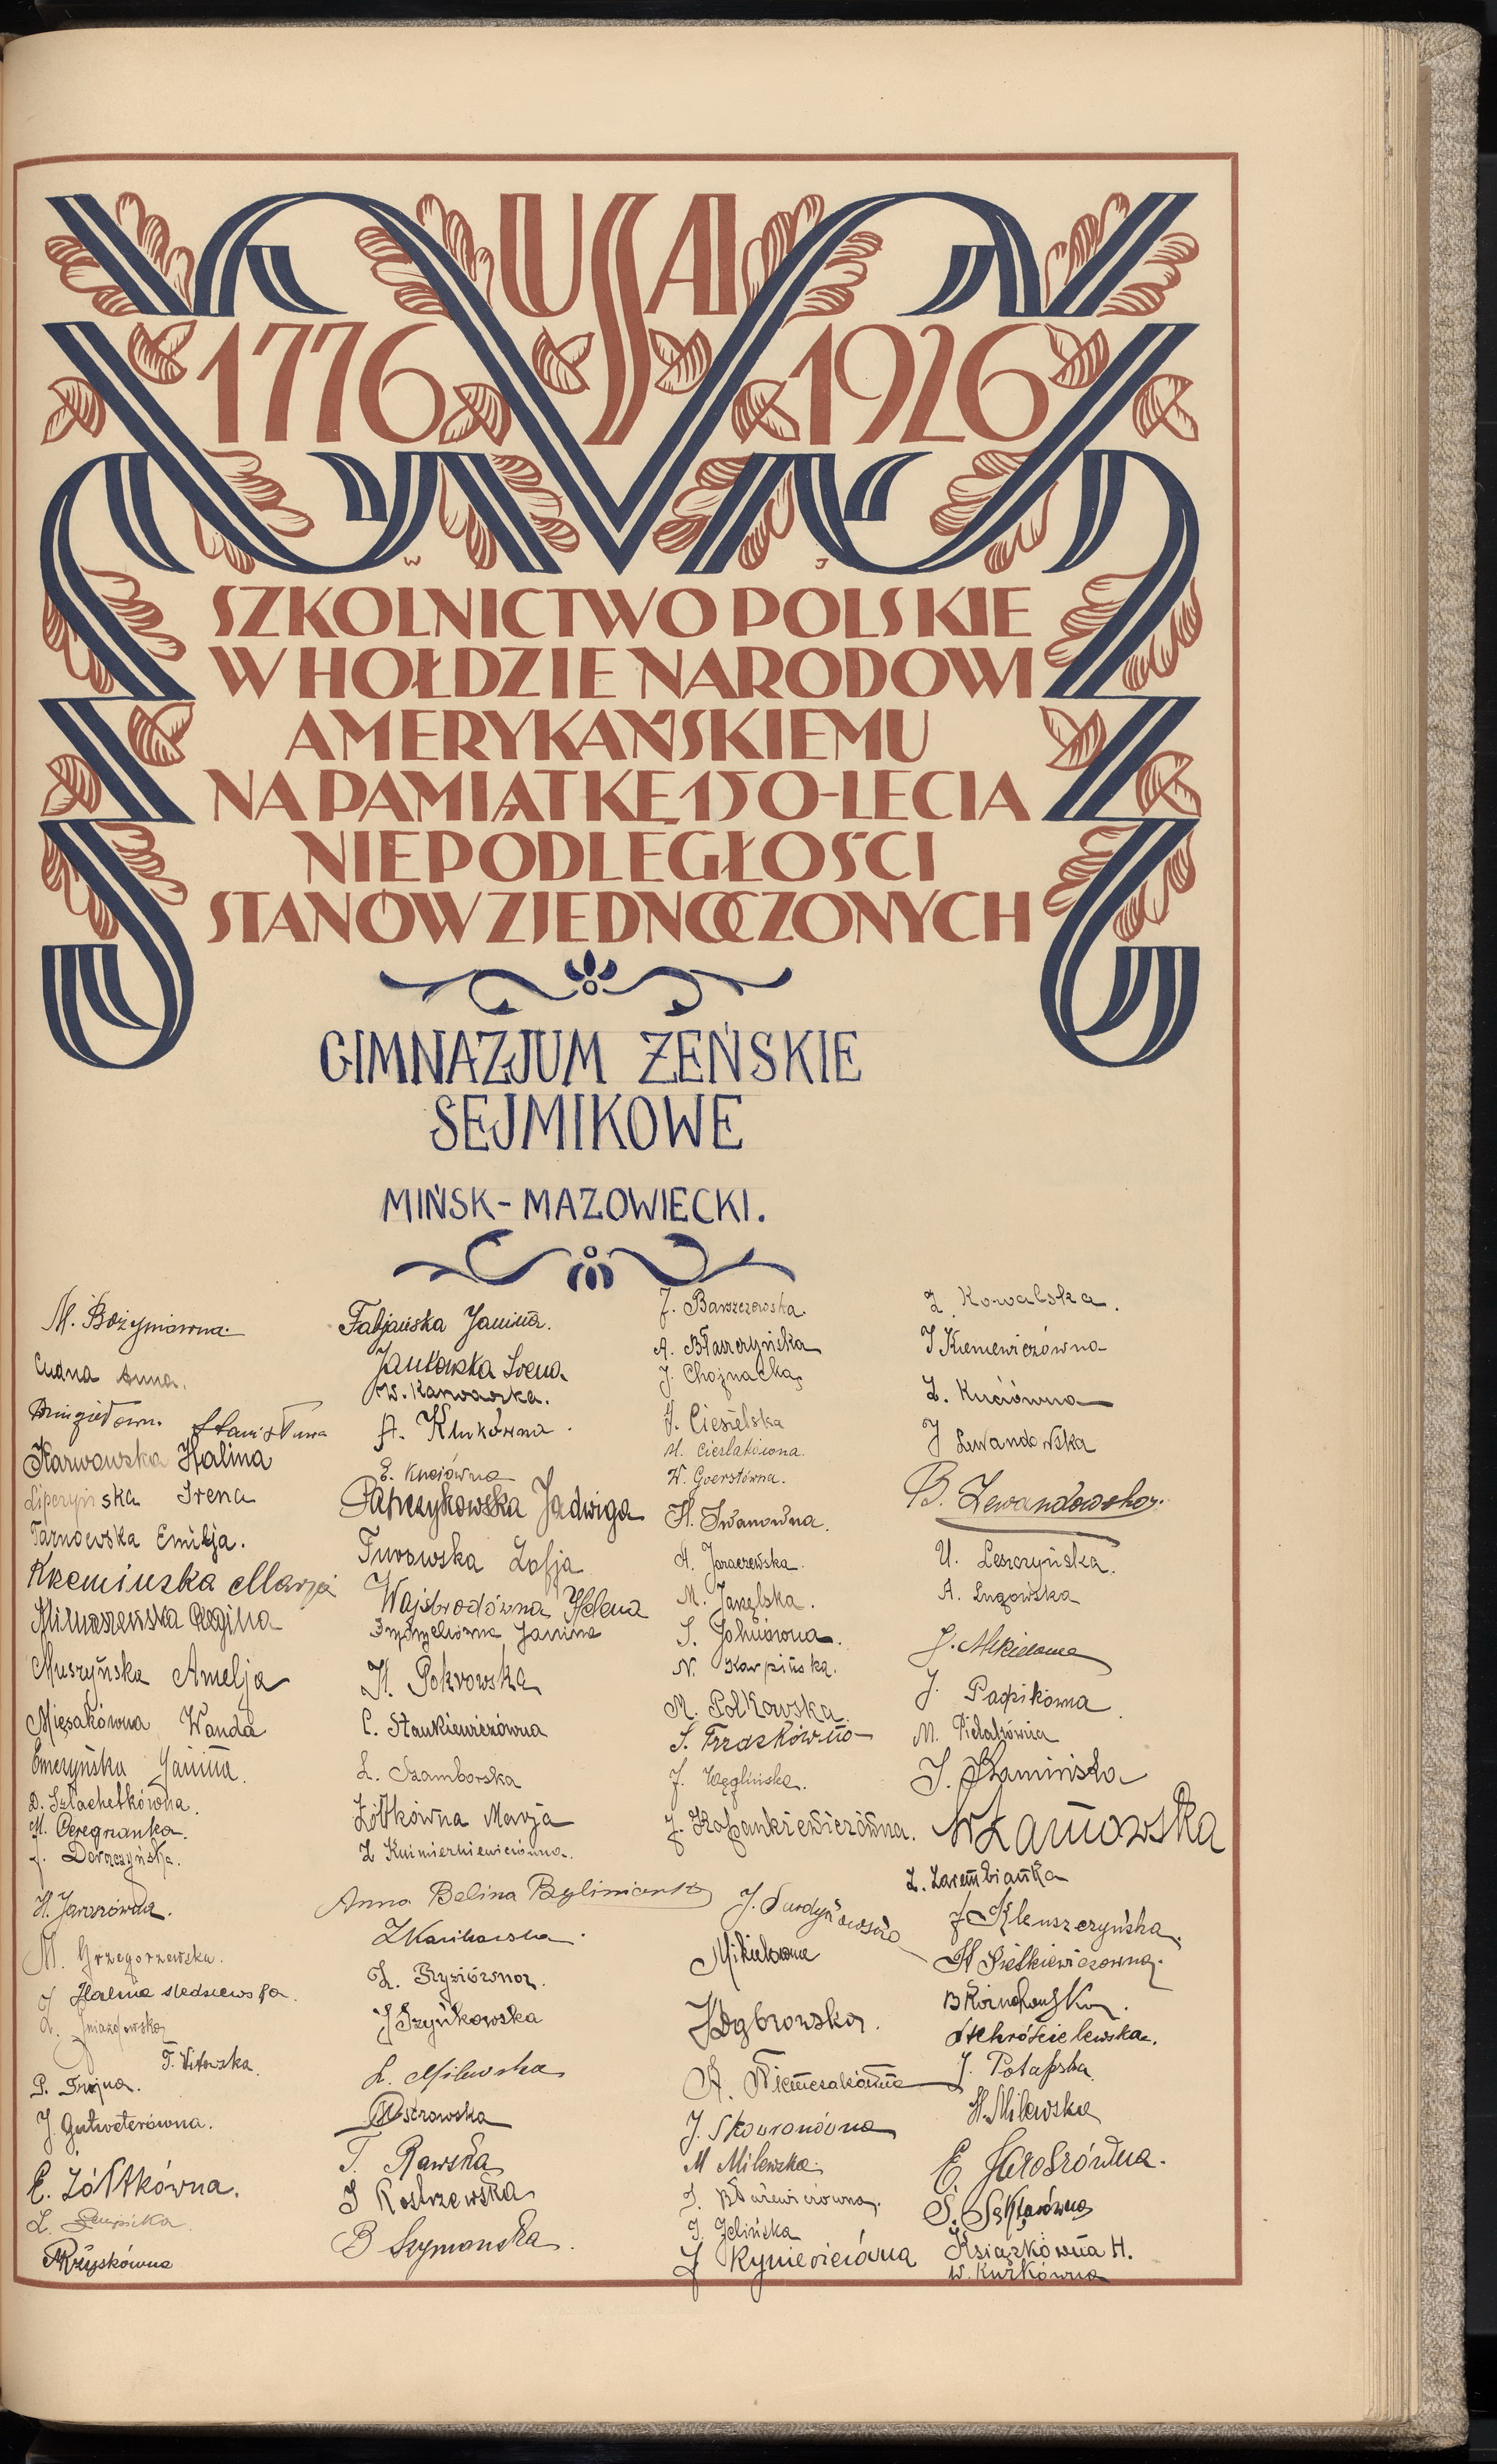 USA
1776 1926
W J
SZKOLNICTWO POLSKIE
W HOŁDZIE NARODOWI
AMERYKAŃSKIEMU
NA PAMIĄTKĘ 150-LECIA
NIEPODLEGŁOŚCI
STANÓW ZJEDNOCZONYCH
GIMNAZJUM ŻEŃSKIE
SEJMIKOWE
MIŃSK-MAZOWIECKI.
M. Bożymówna.
Cudna Anna.
Stanisława
Karwowska Halina
Lipczyńska Irena
Tarnowska Emilja.
Krzemińska Marja
Miłuszewska Regina
Muszyńska Amelja
Mięsakówna Wanda
Janina
D. Szlachetkówna.
M. Ceregrzanka.
J. Doroszyńska.
H. Jaroszówna.
M. Grzegorzewska.
J Halina Sledziewska.
L.
T. Witowska.
P. Trojna.
J. Gutweterówna.
E. Żółtkówna.
L.
Kruszkówna
Fabjańska Janina.
Jankowska Irena
W. Karwowska.
A. Klukówna.
E. Knoiówna
Papczykowska Jadwiga
Turowska Zofja
Wajsbrodówna Helena
Janina
H. Pokrowska
C. Stankiewiczówna
L. Szamborska
Żółtkówna Marja
Z Kuimierkiewiczówna.
Anna Belina Bryliniank
Z Karikowska.
Z. Bryziówna.
J Szyńkowska
L. Milewska
Ostrowska
T. Rawska
J Kostrzewska
B Szymańska.
J. Barszczewska.
A. Błaszczyńska
J. Chojnacka
H. Ciesielska
M. Cieślakówna.
W. Goerstówna.
H. Iwanówna.
H. Jaraczewska.
M. Jarzębska.
S. Johnówna.
N. Karpińska.
M. Polkowska.
S. Trzaskówna
J. Węglińska.
J. Kofankiewiczówna.
J. Surdykowska
Mikielowna
J Dąbrowska.
A. Niemczakówna
J. Skowronówna
M Milewska.
J. Błażewiczówna.
J. Jelińska
J Rymiewiczówna
Z. Kowalska.
J Kiemewiczówna
Z. Kuciówna
J Lewandowska
B. Lewandowska.
U. Leszczyńska.
A. Ługowska
J. Mikielowna
J. Papikówna
M. Pielakówna
J. Kamińska
W Łamowska
Z. Zarembianka
J Kleuszczyńska.
H Pietkiewiczówna.
B Kornchowska.
A Chróścielewska.
J. Potapska
H. Milewska
E Jaroszówna.
S. Sęktasówna
Książkówna H.
W. Kurkówna